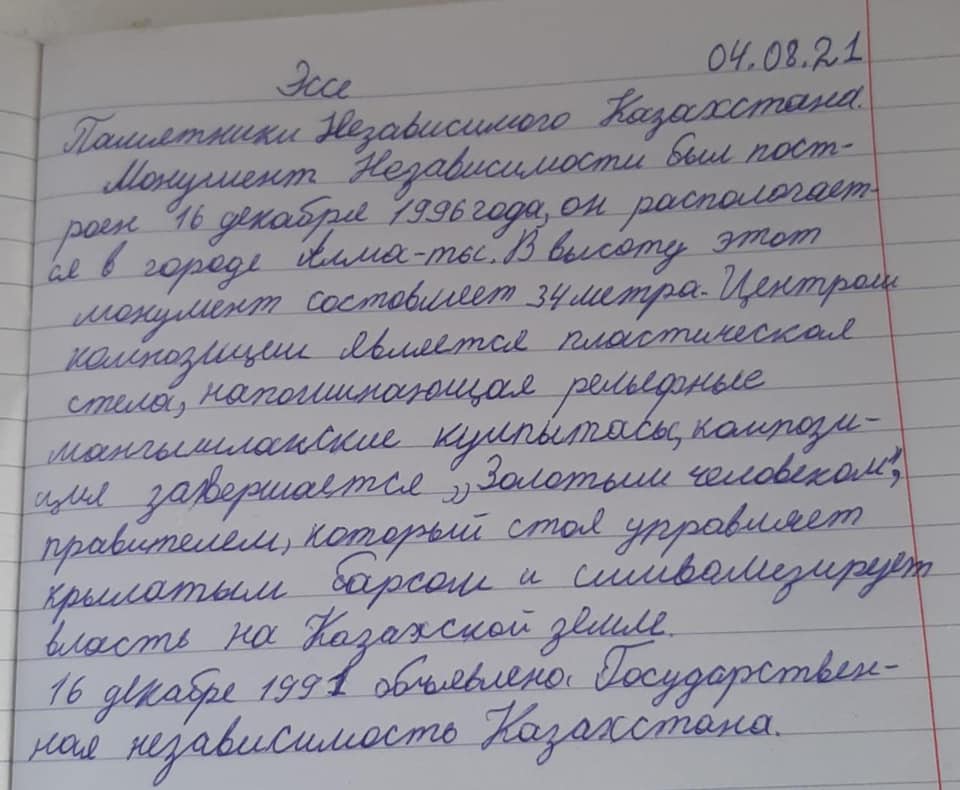 04.08.21
Эссе
Памятники Независимого Казахстана.
Монумент Независимости был пост-
роен 16 декабря 1996 года, он распологает-
ся в городе Алма-ты. В высоту этот
монумент состовляет 34 метра. Центром
композиции является пластическая
стела, напоминающая рельефные
мангышлакские кулпытасы, компози-
ция завершается „Золотым человеком",
правителем, который стоя управляет
крылатым барсом и символизирует
власть на Казахской земле.
16 декабре 1991 объявлено. Государствен-
ная независимость Казахстана.